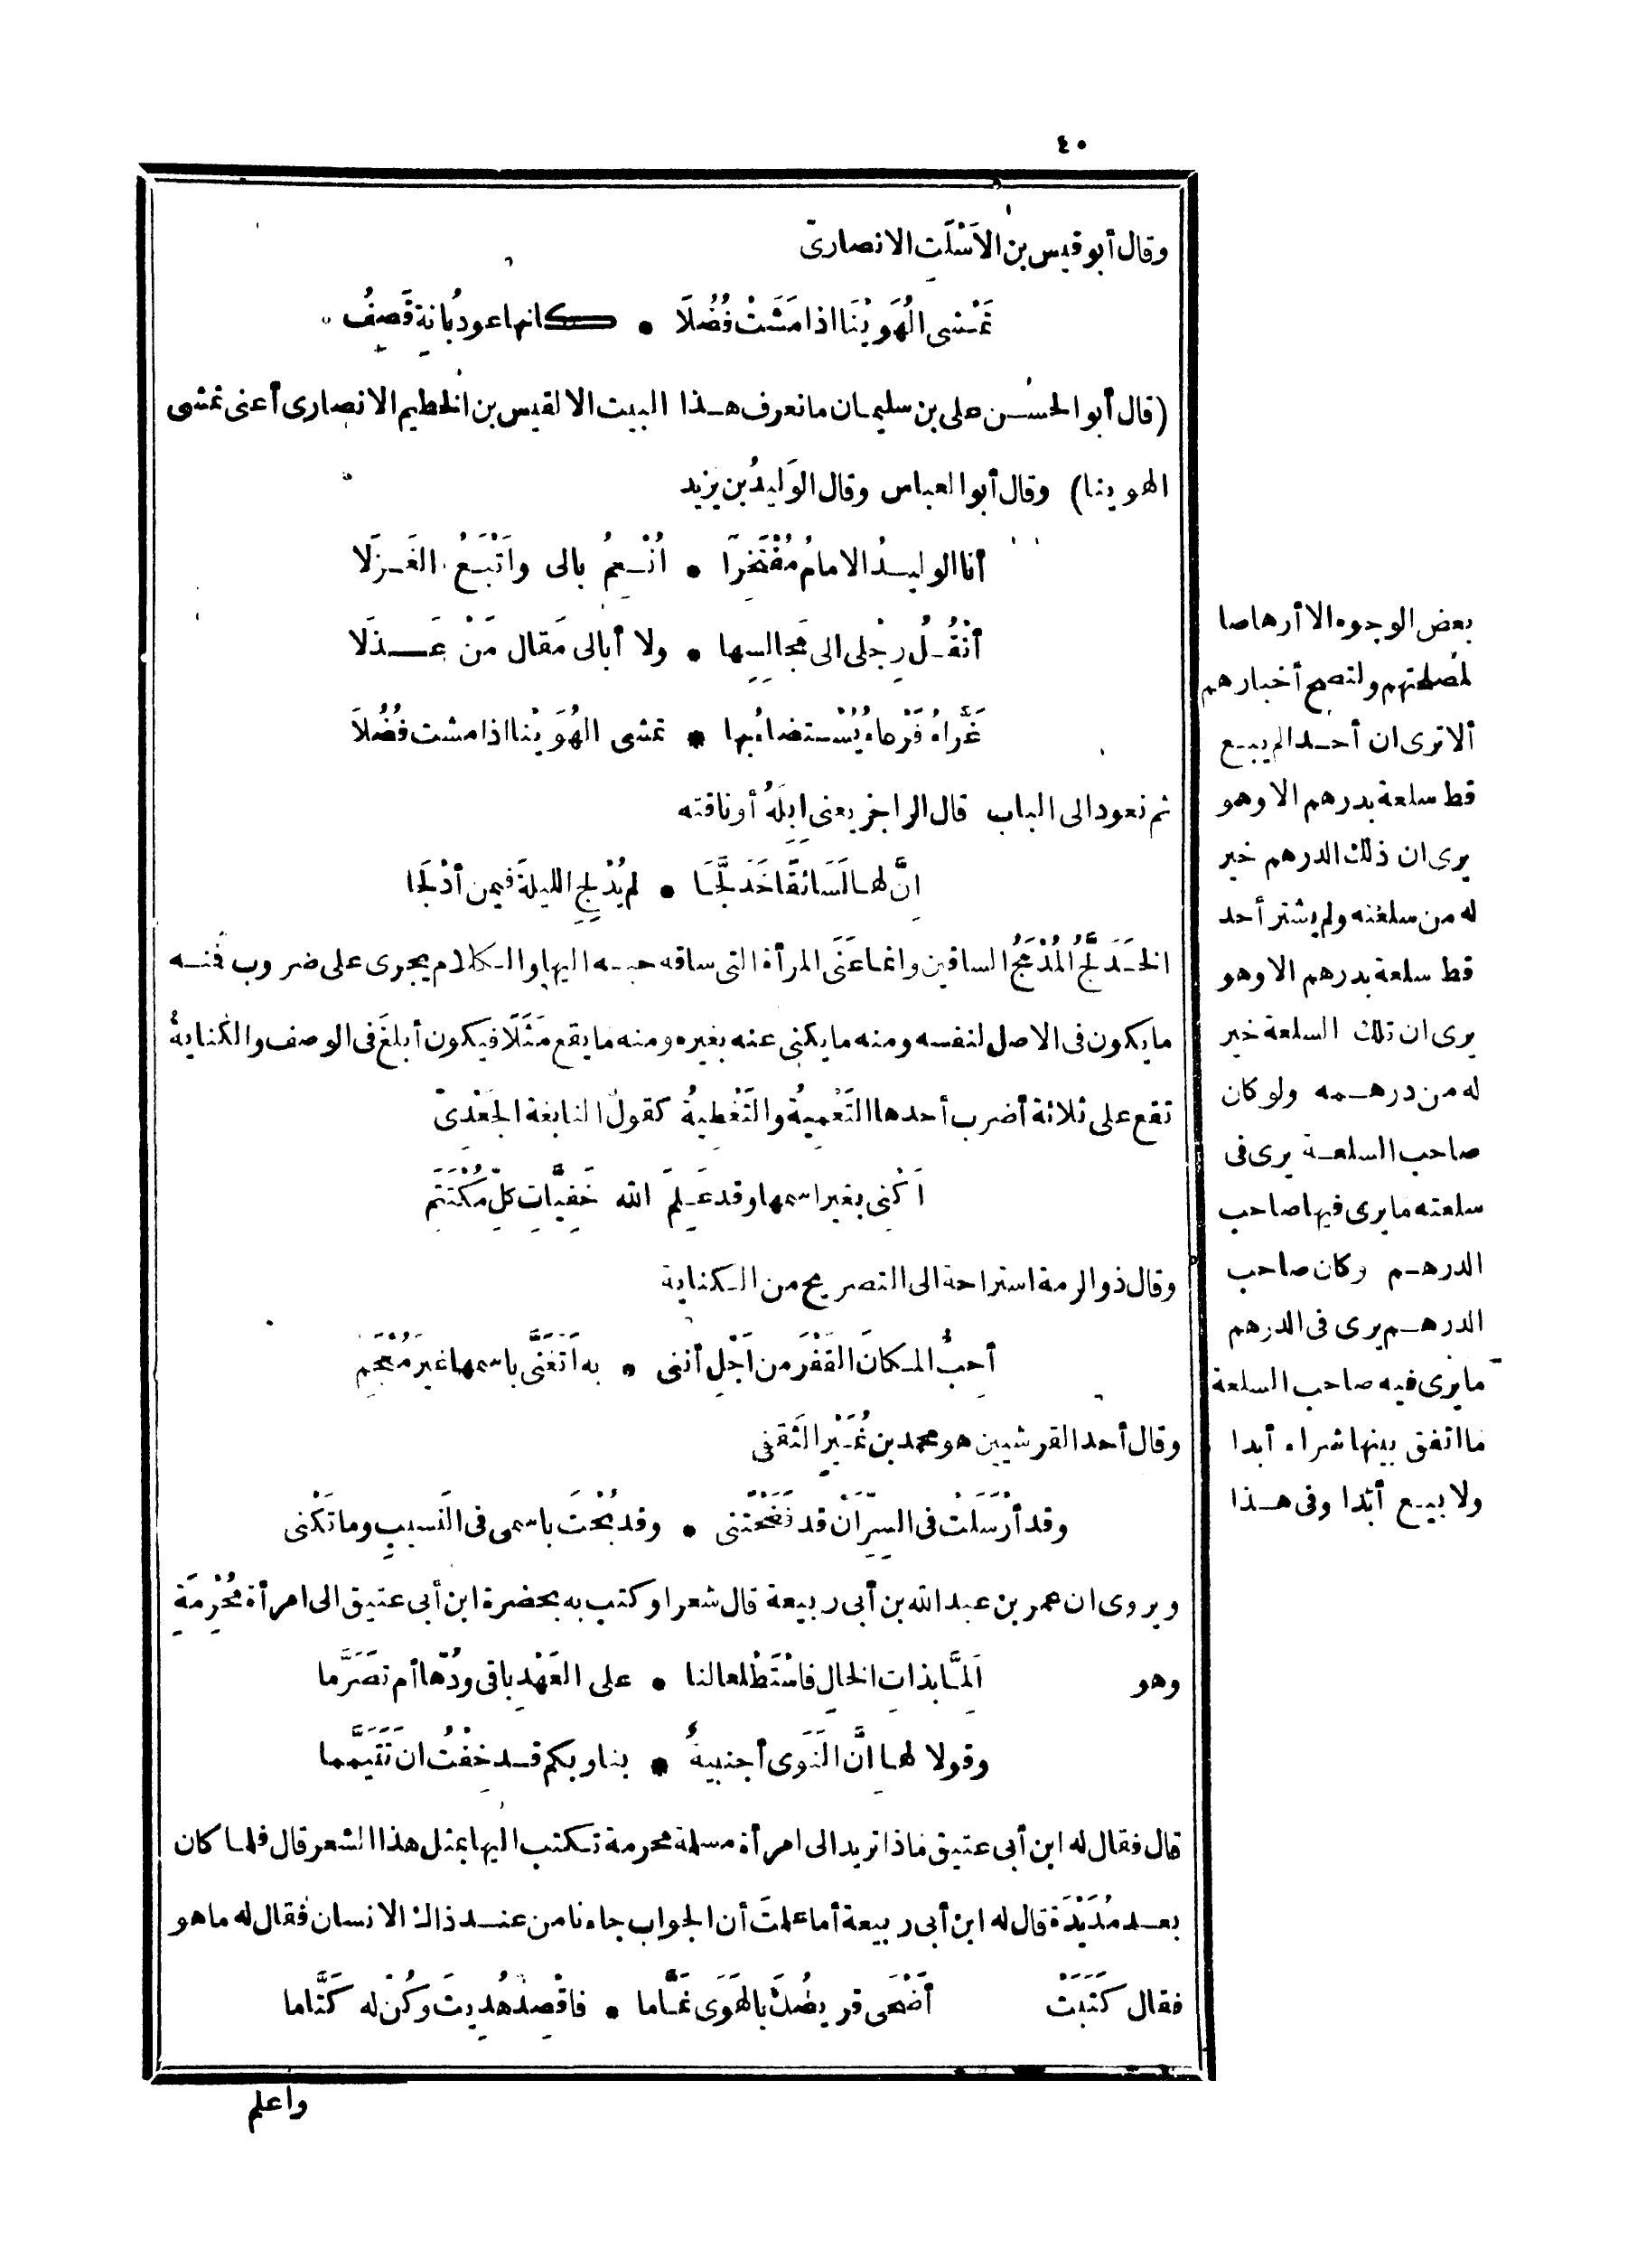 ٤٠
وقال أبو قيس بن الاَسْلَتِ الانصارىّ
تَمْشى الهُوَ يْنَا اذا مَشَتْ فُضُلاً • كانها عودُ بانةٍ قَصِفُ
(قال أبو الحسن على بن سليمان ما نعرف هذا البيت الا لقيس بن الخطيم الانصارى أعنى تمشى
الهوينا) وقال أبو العباس وقال الوَليدُ بن يزيد
أنا الوليدُ الامامُ مُفْتَخِرًا • اُنْعِمُ بالى واَتْبَعُ الغَزَلا
أنْقُلُ رِجْلى الى مَجالِسِها • ولا أبالى مَقال مَنْ عَذَلَا
غَرَّاءُ فَرْعاءُ يُسْتضاءُ بها • تمشى الهُوَيْنا اذا مشت فُضُلاَ
ثم نعود الى الباب قال الراجز يعنى اِبِلَهُ أو ناقته
اِنَّ لها لَسَائقًا خَدَلَّجَا • لم يُدْلِجِ الليلةَ فيمن أدْلَجَا
الخَدَلَّجُ المُدْمَجُ الساقين وانما عَنَى المرأة التى ساقه حبه اليها والكلام يجرى على ضروب فمنه
ما يكون فى الاصل لنفسه ومنه ما يكنى عنه بغيره ومنه ما يقع مَثَلًا فيكون أبلغَ فى الوصف والكنايةُ
تقع على ثلاثة أضرب أحدها التَعْمِيةُ والتَغْطِيةُ كقول النابغة الجَعْدِىّ
اَكْنِى بغير اسمها وقد عَلِمَ الله خَفِيَّاتِ كلِّ مُكْتَتَمِ
وقال ذو الرمة استراحة الى التصريح من الكناية
أحِبُّ المكانَ القَفْرَ من اَجْلِ أننى • به اَتَغَنَّى باسمها غيرَ مُعْجَمِ
وقال أحد القرشيين هو محمد بن نُمَيْرٍ الثقفى
وقد أرْسَلَتْ فى السِرِّ اَنْ قد فَضَحْتَنى • وقد بُحْتَ باسمى فى النَسيبِ وما تَكْنى
ويروى ان عمر بن عبد الله بن أبى ربيعة قال شعرا وكتب به بحضرة ابن أبى عتيق الى امرأة مُحْرِمَةٍ
وهو اَلِمَّا بذاتِ الخالِ فاسْتَطْلعا لنا • على العَهْدِ باقى ودُّها أم تَصَرَّما
وقولا لها اِنَّ النَوَى أجنبيةُ • بنا وبكم قد خِفْتُ ان تَتَيَمَّما
قال فقال له ابن أبى عتيق ماذا تريد الى امرأة مسلمة محرمة تكتب اليها بمثل هذا الشعر قال فلما كان
بعد مُدَيْدَة قال له ابن أبى ربيعة أما علمتَ أن الجواب جاءنا من عند ذاك الانسان فقال له ما هو
فقال كَتَبَتْ أضْحَى قريضُكَ بالهَوَى نَمَّاما • فاقْصِدْ هُدِيتَ وكُنْ له كَتَّاما
واعلم
بعض الوجوه الا أرهاصا
لمصلحتهم ولتصح أخبارهم
ألا ترى ان أحدا لم يبع
قط سلعة بدرهم الا وهو
يرى ان ذلك الدرهم خير
له من سلعته ولم يشتر أحد
قط سلعة بدرهم الا وهو
يرى ان تلك السلعة خير
له من درهمه ولو كان
صاحب السلعة يرى فى
سلعته ما يرى فيها صاحب
الدرهم وكان صاحب
الدرهم يرى فى الدرهم
ما يرى فيه صاحب السلعة
ما اتفق بينها شراء أبدا
ولا بيع أبدا وفى هذا